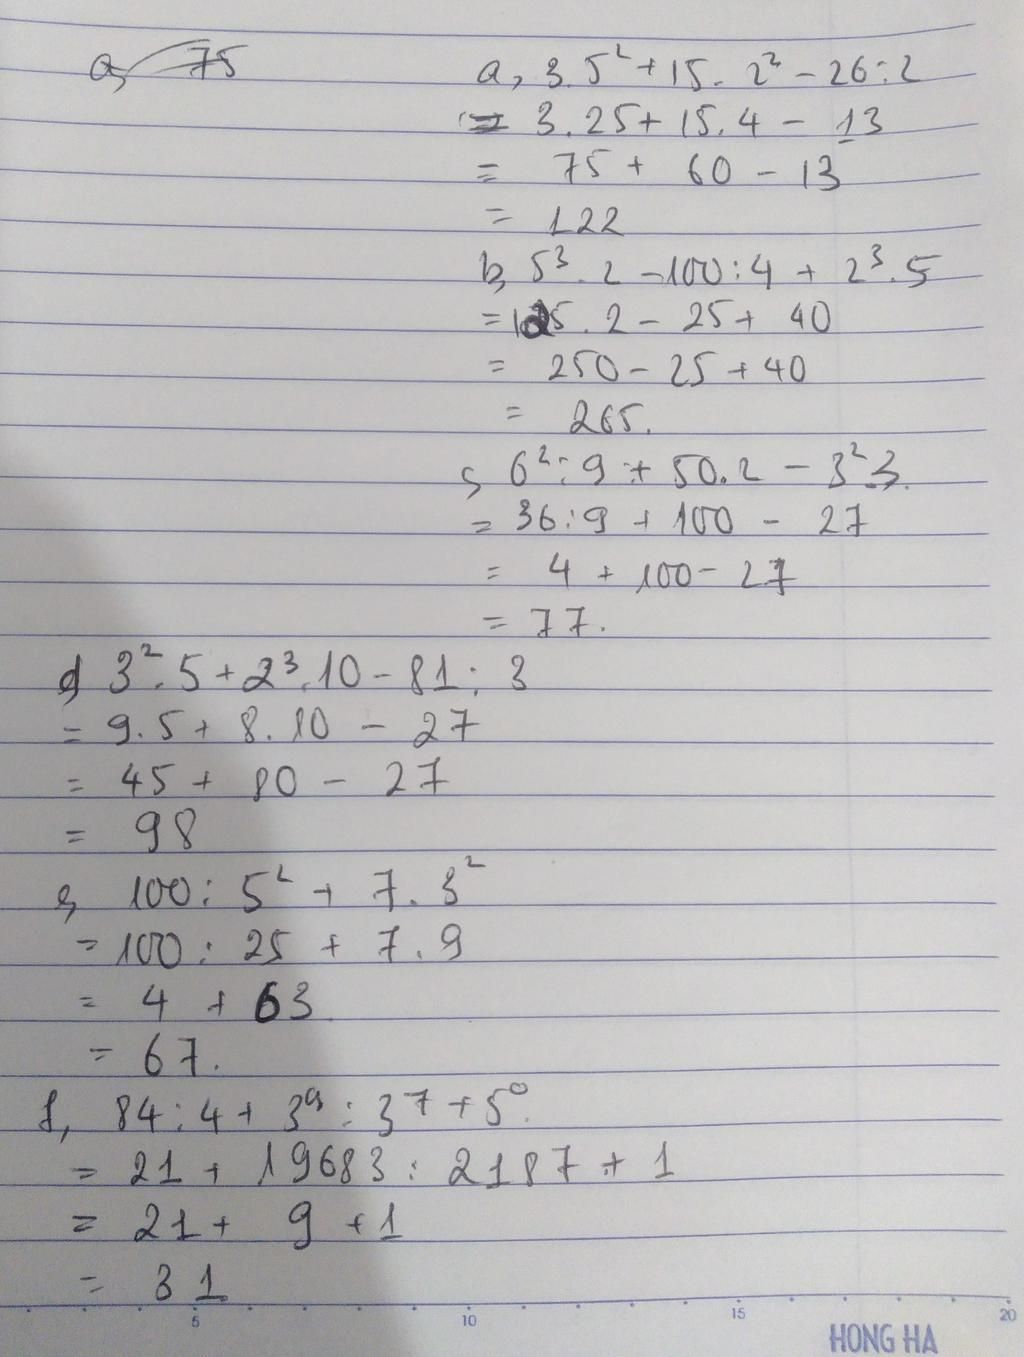 a, 75
a, 3.5² + 15. 2² - 26 : 2
= 3.25 + 15.4 - 13
= 75 + 60 - 13
= 122
b, 5³ . 2 - 100 : 4 + 2³.5
= 125 . 2 - 25 + 40
= 250 - 25 + 40
= 265.
c, 6² : 9 + 50.2 - 3² 3.
= 36 : 9 + 100 - 27
= 4 + 100 - 27
= 77.
d, 3².5 + 2³.10 - 81 : 3
= 9.5 + 8.10 - 27
= 45 + 80 - 27
= 98
e, 100 : 5² + 7. 3²
= 100 : 25 + 7.9
= 4 + 63
= 67.
f, 84 : 4 + 3⁹ : 3⁷ + 5⁰.
= 21 + 19683 : 2187 + 1
= 21 + 9 + 1
= 31
5 10 15 20
HONG HA